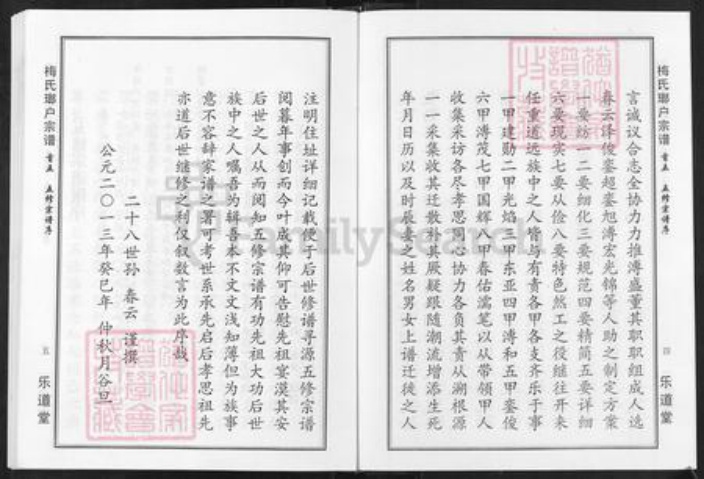 梅氏瑯户宗谱 首五 五修宗谱序
四 乐道堂
言诚议合志全协力力推溥盛董其职职组成人选
春云泽俊銮超銮旭溥宏光锦等人助之制定方案
一要结一二要细化三要规范四要精简五要详细
六要现实七要从俭八要特色然工之役继往开来
任重道远族中之人皆与有责各甲各支齐乐于事
一甲建勋二甲光焰三甲东亚四甲溥和五甲銮俊
六甲溥茂七甲国辉八甲春佑濡笔以从带领甲人
收集采访各尽孝思同心协力各负其责从溯根源
一一采集收其迁散扑其厥疑跟随潮流增添生死
年月日历以及时辰妻之姓名男女上谱迁徙之人
注明住址详细记载便于后世修谱寻源五修宗谱
阅暮年事创而今叶成其仰可告慰先祖宴漠其安
后世之人从而阅知五修宗谱有功先祖大功后世
族中之人嘱吾为辑吾本不文文浅知薄但为族事
意不容辞家谱之署可考世系承先启后孝思祖先
亦道后世继修之利仅叙数言为此序哉
二十八世孙 春云 谨撰
公元二〇一三年癸巳年 仲秋月谷旦
梅氏瑯户宗谱 首五 五修宗谱序
五 乐道堂
FamilySearch